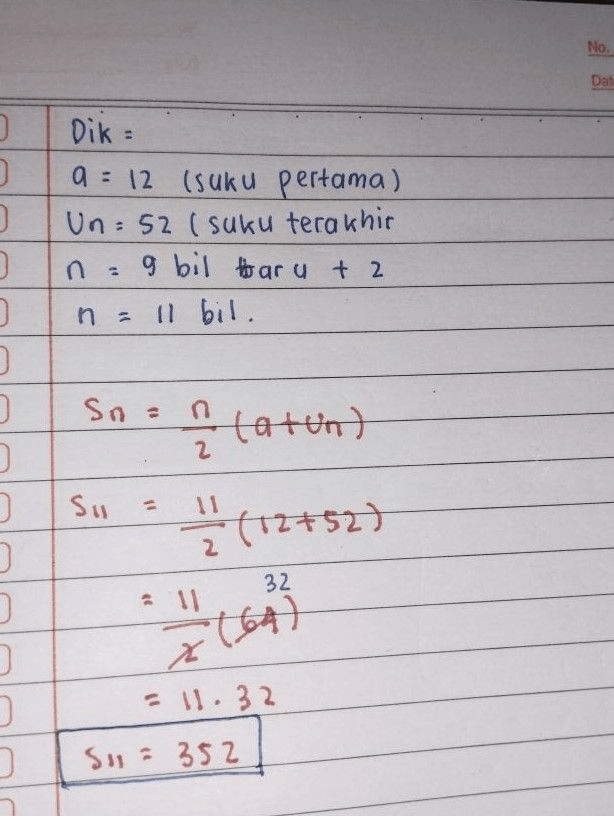 No.
Dat
Dik =
a = 12 (suku pertama)
Un = 52 (suku terakhir
n = 9 bil baru + 2
n = 11 bil.
Sn = n/2 (a+Un)
S11 = 11/2 (12+52)
= 11/2 (64) 32
= 11 . 32
S11 = 352